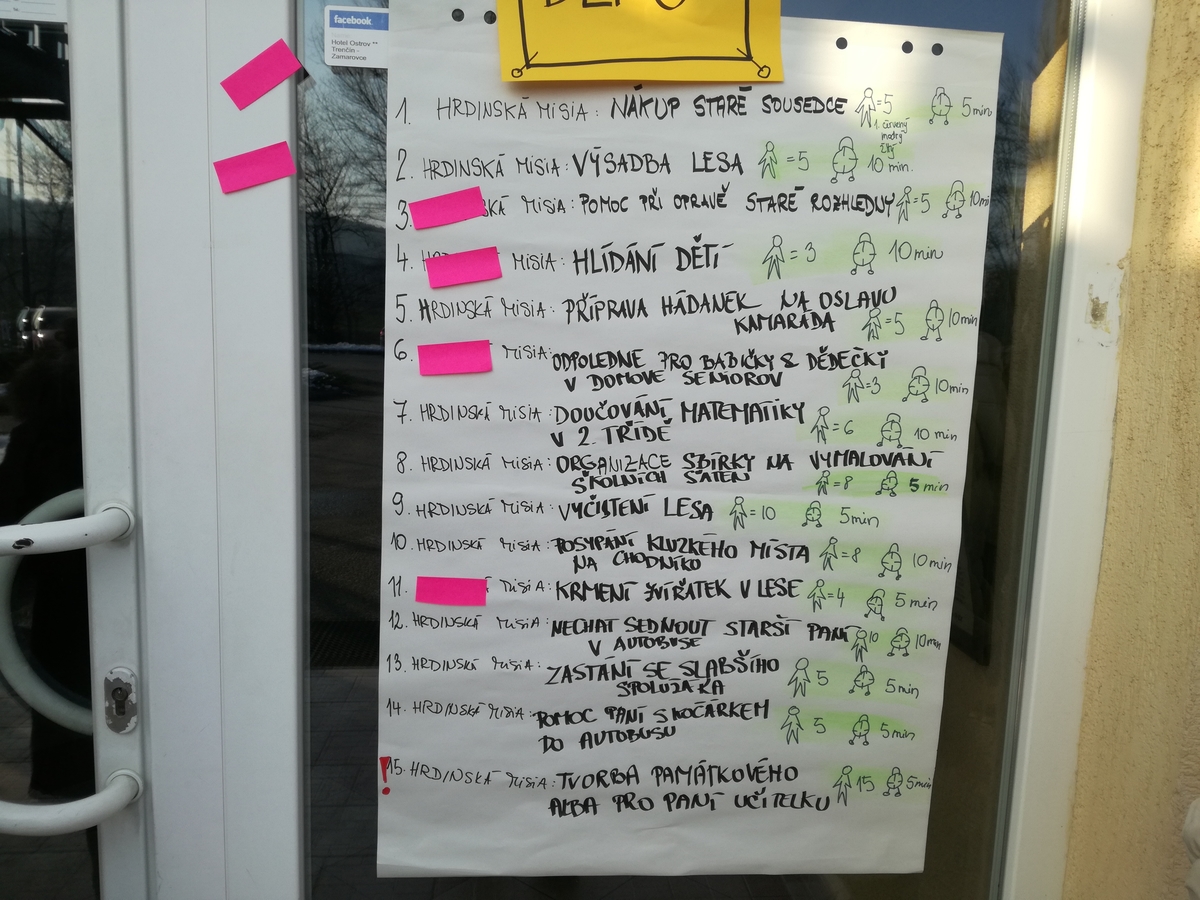 facebook.
Hotel Ostrov **
Trenčín -
Zamarovce
1. HRDINSKÁ MISIA: NÁKUP STARÉ SOUSEDCE =5 5 min
1. červený
modrý
žltý
2. HRDINSKÁ MISIA: VÝSADBA LESA =5 10 min.
3. MISIA: POMOC PŘI OPRAVĚ STARÉ ROZHLEDNY =5 10 min
4. MISIA: HLÍDÁNÍ DĚTÍ = 3 10 min
5. HRDINSKÁ MISIA: PŘÍPRAVA HÁDANEK NA OSLAVU
KAMARÁDA =5 10 min
6. MISIA: ODPOLEDNE PRO BABIČKY & DĚDEČKY
V DOMOVE SENIOROV =3 10 min
7. HRDINSKÁ MISIA: DOUČOVÁNÍ MATEMATIKY
V 2. TŘÍDĚ = 6 10 min
8. HRDINSKÁ MISIA: ORGANIZACE SBÍRKY NA VYMALOVÁNÍ
ŠKOLNÍCH ŠATEN =8 5 min
9. HRDINSKÁ MISIA: VYČIŠTENÍ LESA = 10 5 min
10. HRDINSKÁ MISIA: POSYPÁNÍ KLUZKÉHO MÍSTA
NA CHODNÍKO =8 10 min
11. MISIA: KRMENÍ ZVÍŘÁTEK V LESE =4 5 min
12. HRDINSKÁ MISIA: NECHAT SEDNOUT STARŠÍ PANÍ
V AUTOBUSE 10 10 min
13. HRDINSKÁ MISIA: ZASTÁNÍ SE SLABŠÍHO
SPOLUŽÁKA 5 5 min
14. HRDINSKÁ MISIA: POMOC PANÍ S KOČÁRKEM
DO AUTOBUSU 5 5 min
! 15. HRDINSKÁ MISIA: TVORBA PAMÁTKOVÉHO
ALBA PRO PANÍ UČITELKU 15 5 min